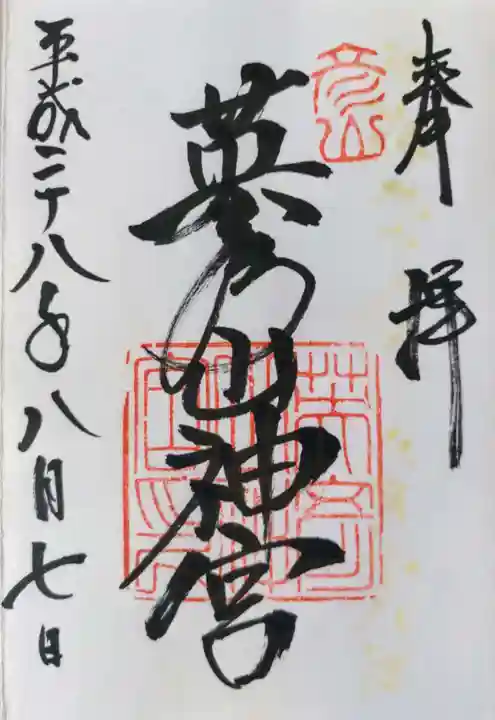 奉拝
彦山
英彦山神宮
平成二十八年八月七日